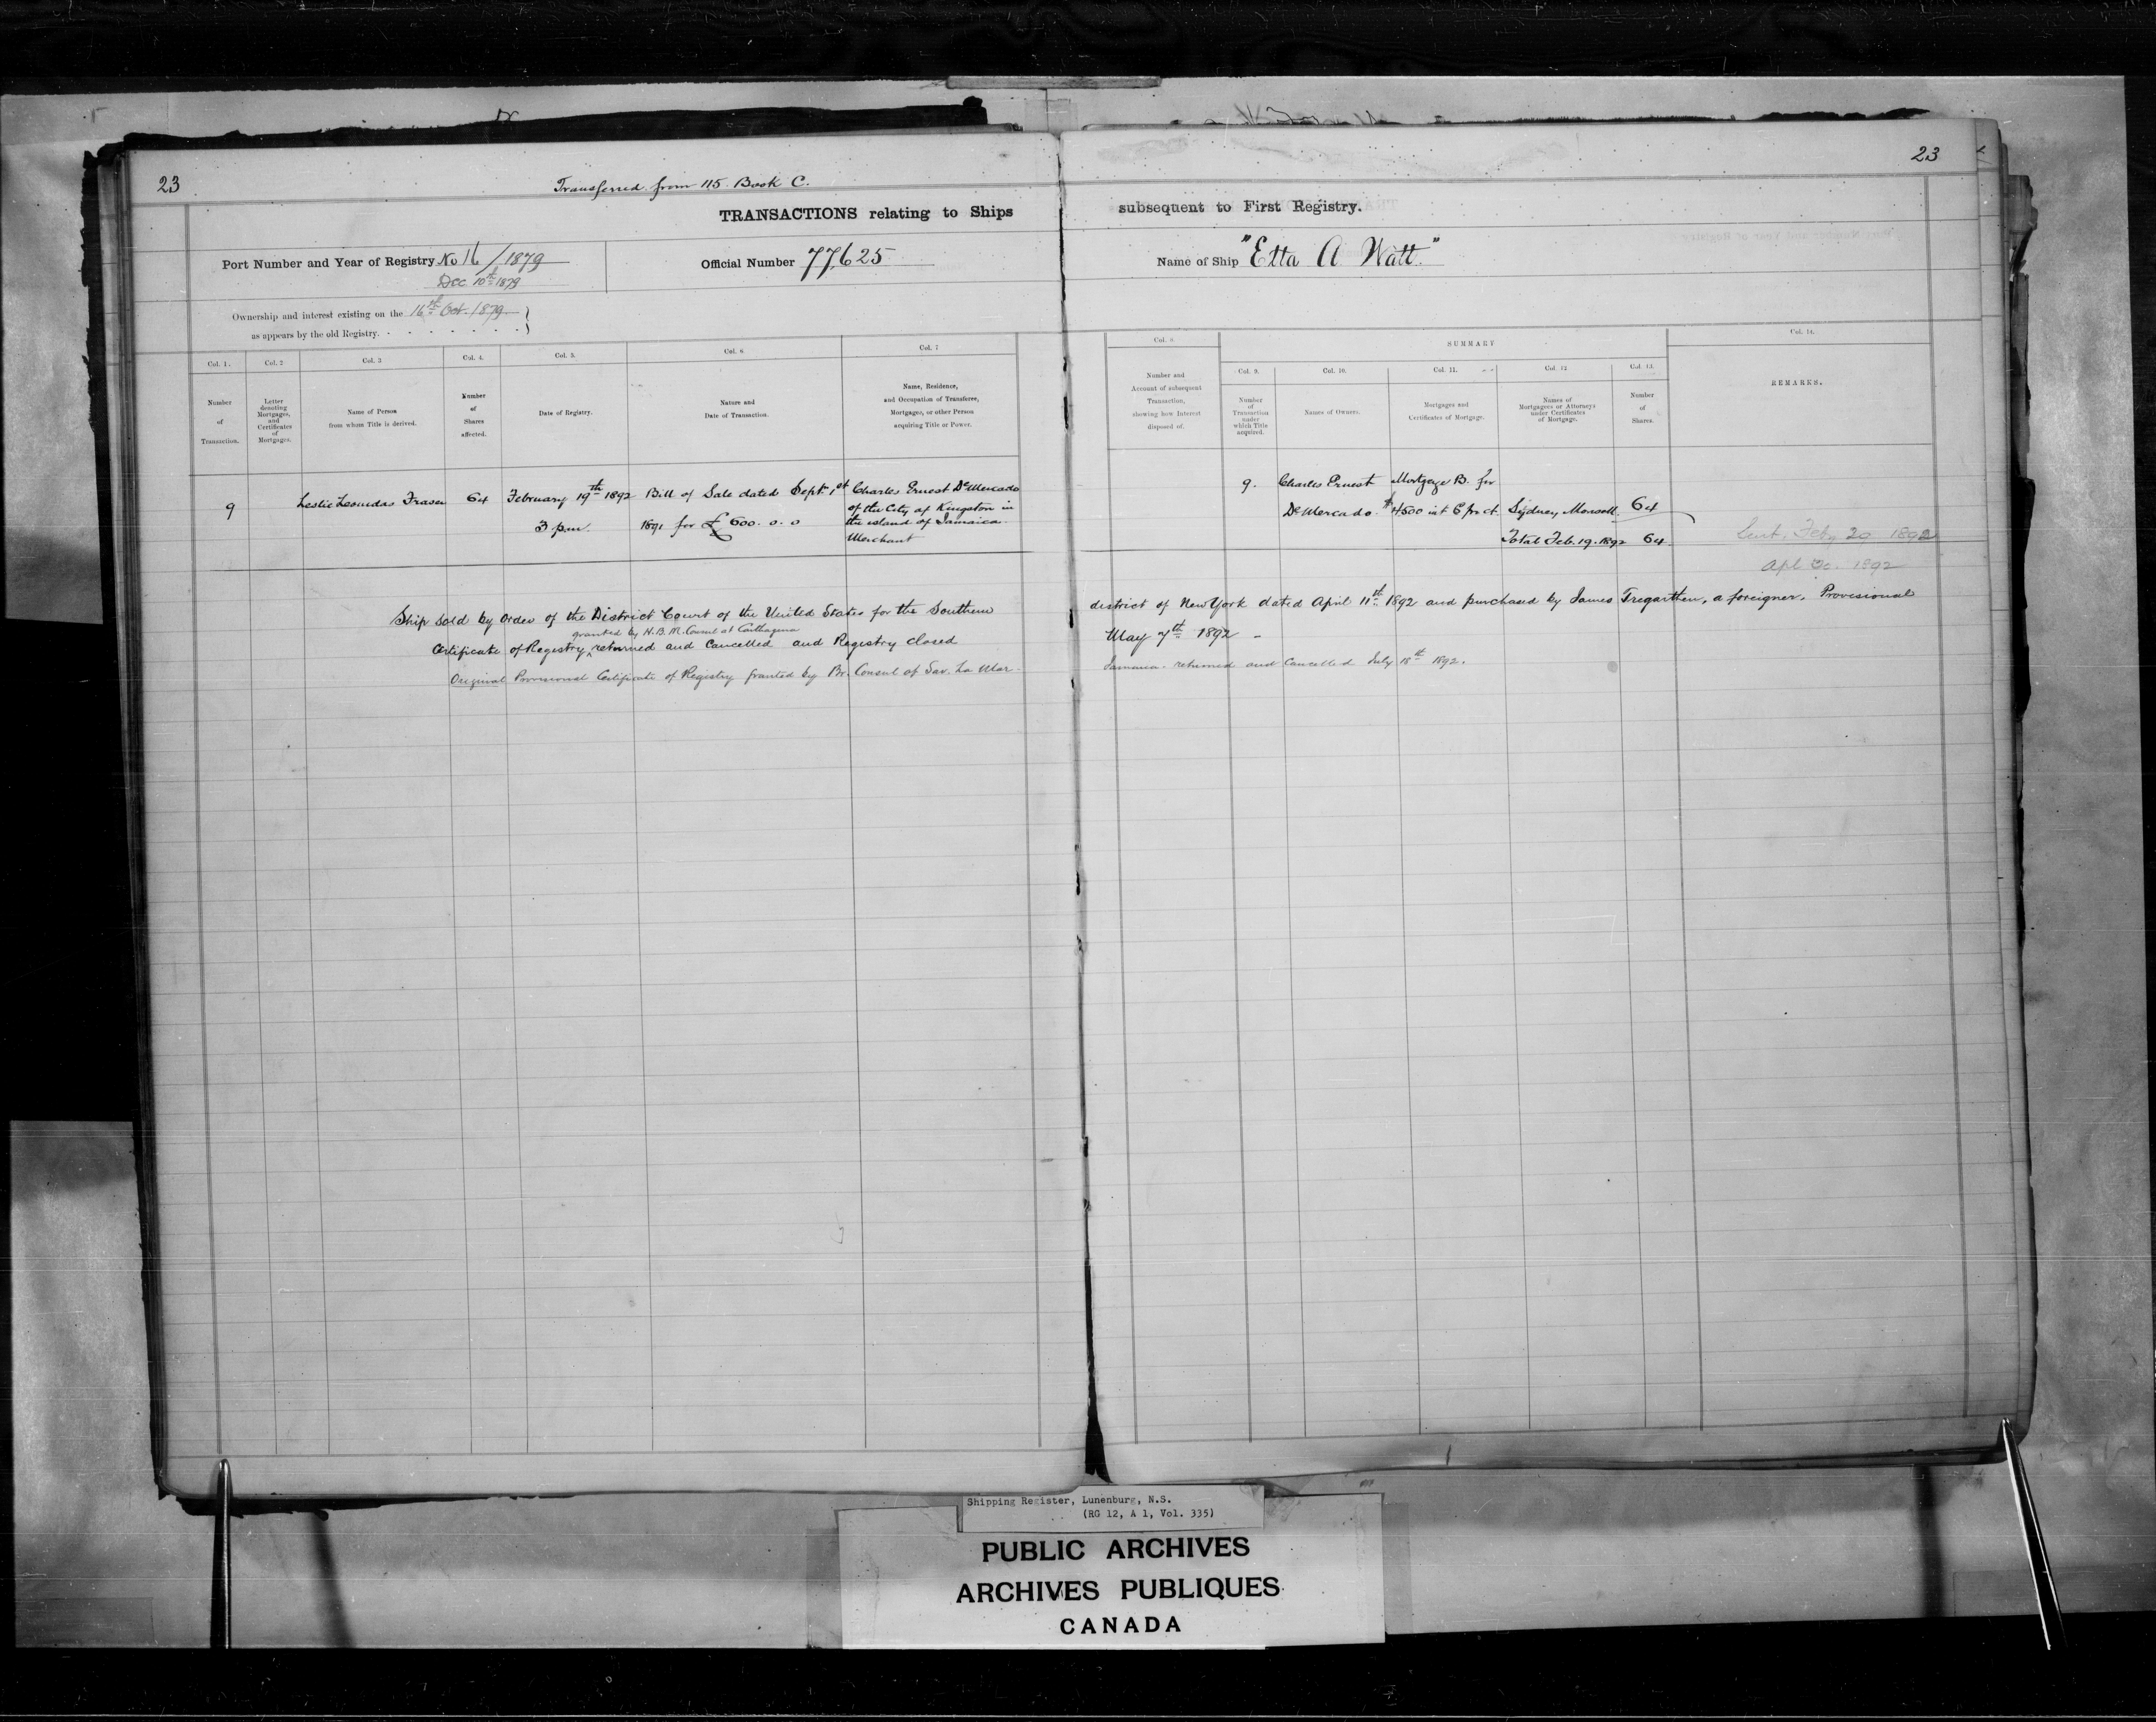 23
Transferred from 115 Book C.
TRANSACTIONS relating to Ships
Port Number and Year of Registry No 16 / 1879
Dec 10th 1879
Official Number 77,625
Ownership and interest existing on the 16th Oct. 1879
as appears by the old Registry.
Col. 1.
Col. 2
Col. 3
Col. 4.
Col. 5.
Col. 6.
Col. 7
Number
of
Transaction.
Letter
denoting
Mortgages,
and
Certificates
of
Mortgages.
Name of Person
from whom Title is derived.
Number
of
Shares
affected.
Date of Registry.
Nature and
Date of Transaction.
Name, Residence,
and Occupation of Transferee,
Mortgagee, or other Person
acquiring Title or Power.
9
Leslie Leonidas Fraser
64
February 19th 1892
3 p.m.
Bill of Sale dated Sept. 1st
1891 for £ 600. 0. 0
Charles Ernest De Mercado
of the City of Kingston in
the island of Jamaica
Merchant
Ship sold by order of the District Court of the United States for the Southern
granted by H.B.M. Consul at Carthagena
Certificate of Registry ^ returned and Cancelled and Registry closed
Original Provisional Certificate of Registry granted by Br. Consul of Sav. La Mar
23
subsequent to First Registry.
Name of Ship "Etta A Watt."
Col. 8
SUMMARY
Col. 14.
Number and
Account of subsequent
Transaction,
showing how Interest
disposed of.
Col. 9.
Col. 10.
Col. 11.
Col. 12
Col. 13.
Number
of
Transaction
under
which Title
acquired.
Names of Owners.
Mortgages and
Certificates of Mortgage.
Names of
Mortgagees or Attorneys
under Certificates
of Mortgage.
Number
of
Shares.
REMARKS.
9.
Charles Ernest
De Mercado.
Mortgage B. for
$4500 int 6 pr ct
Sydney
64
Total Feb. 19. 1892 64
Sent. Feby 20 1892
Apl 1892
district of New York dated April 11th 1892 and purchased by James Tregarthen, a foreigner. Provisional
May 7th 1892 -
Jamaica. returned and Cancelled July 18th 1892.
Shipping Register, Lunenburg, N.S.
(RG 12, A 1, Vol. 335)
PUBLIC ARCHIVES
ARCHIVES PUBLIQUES
CANADA